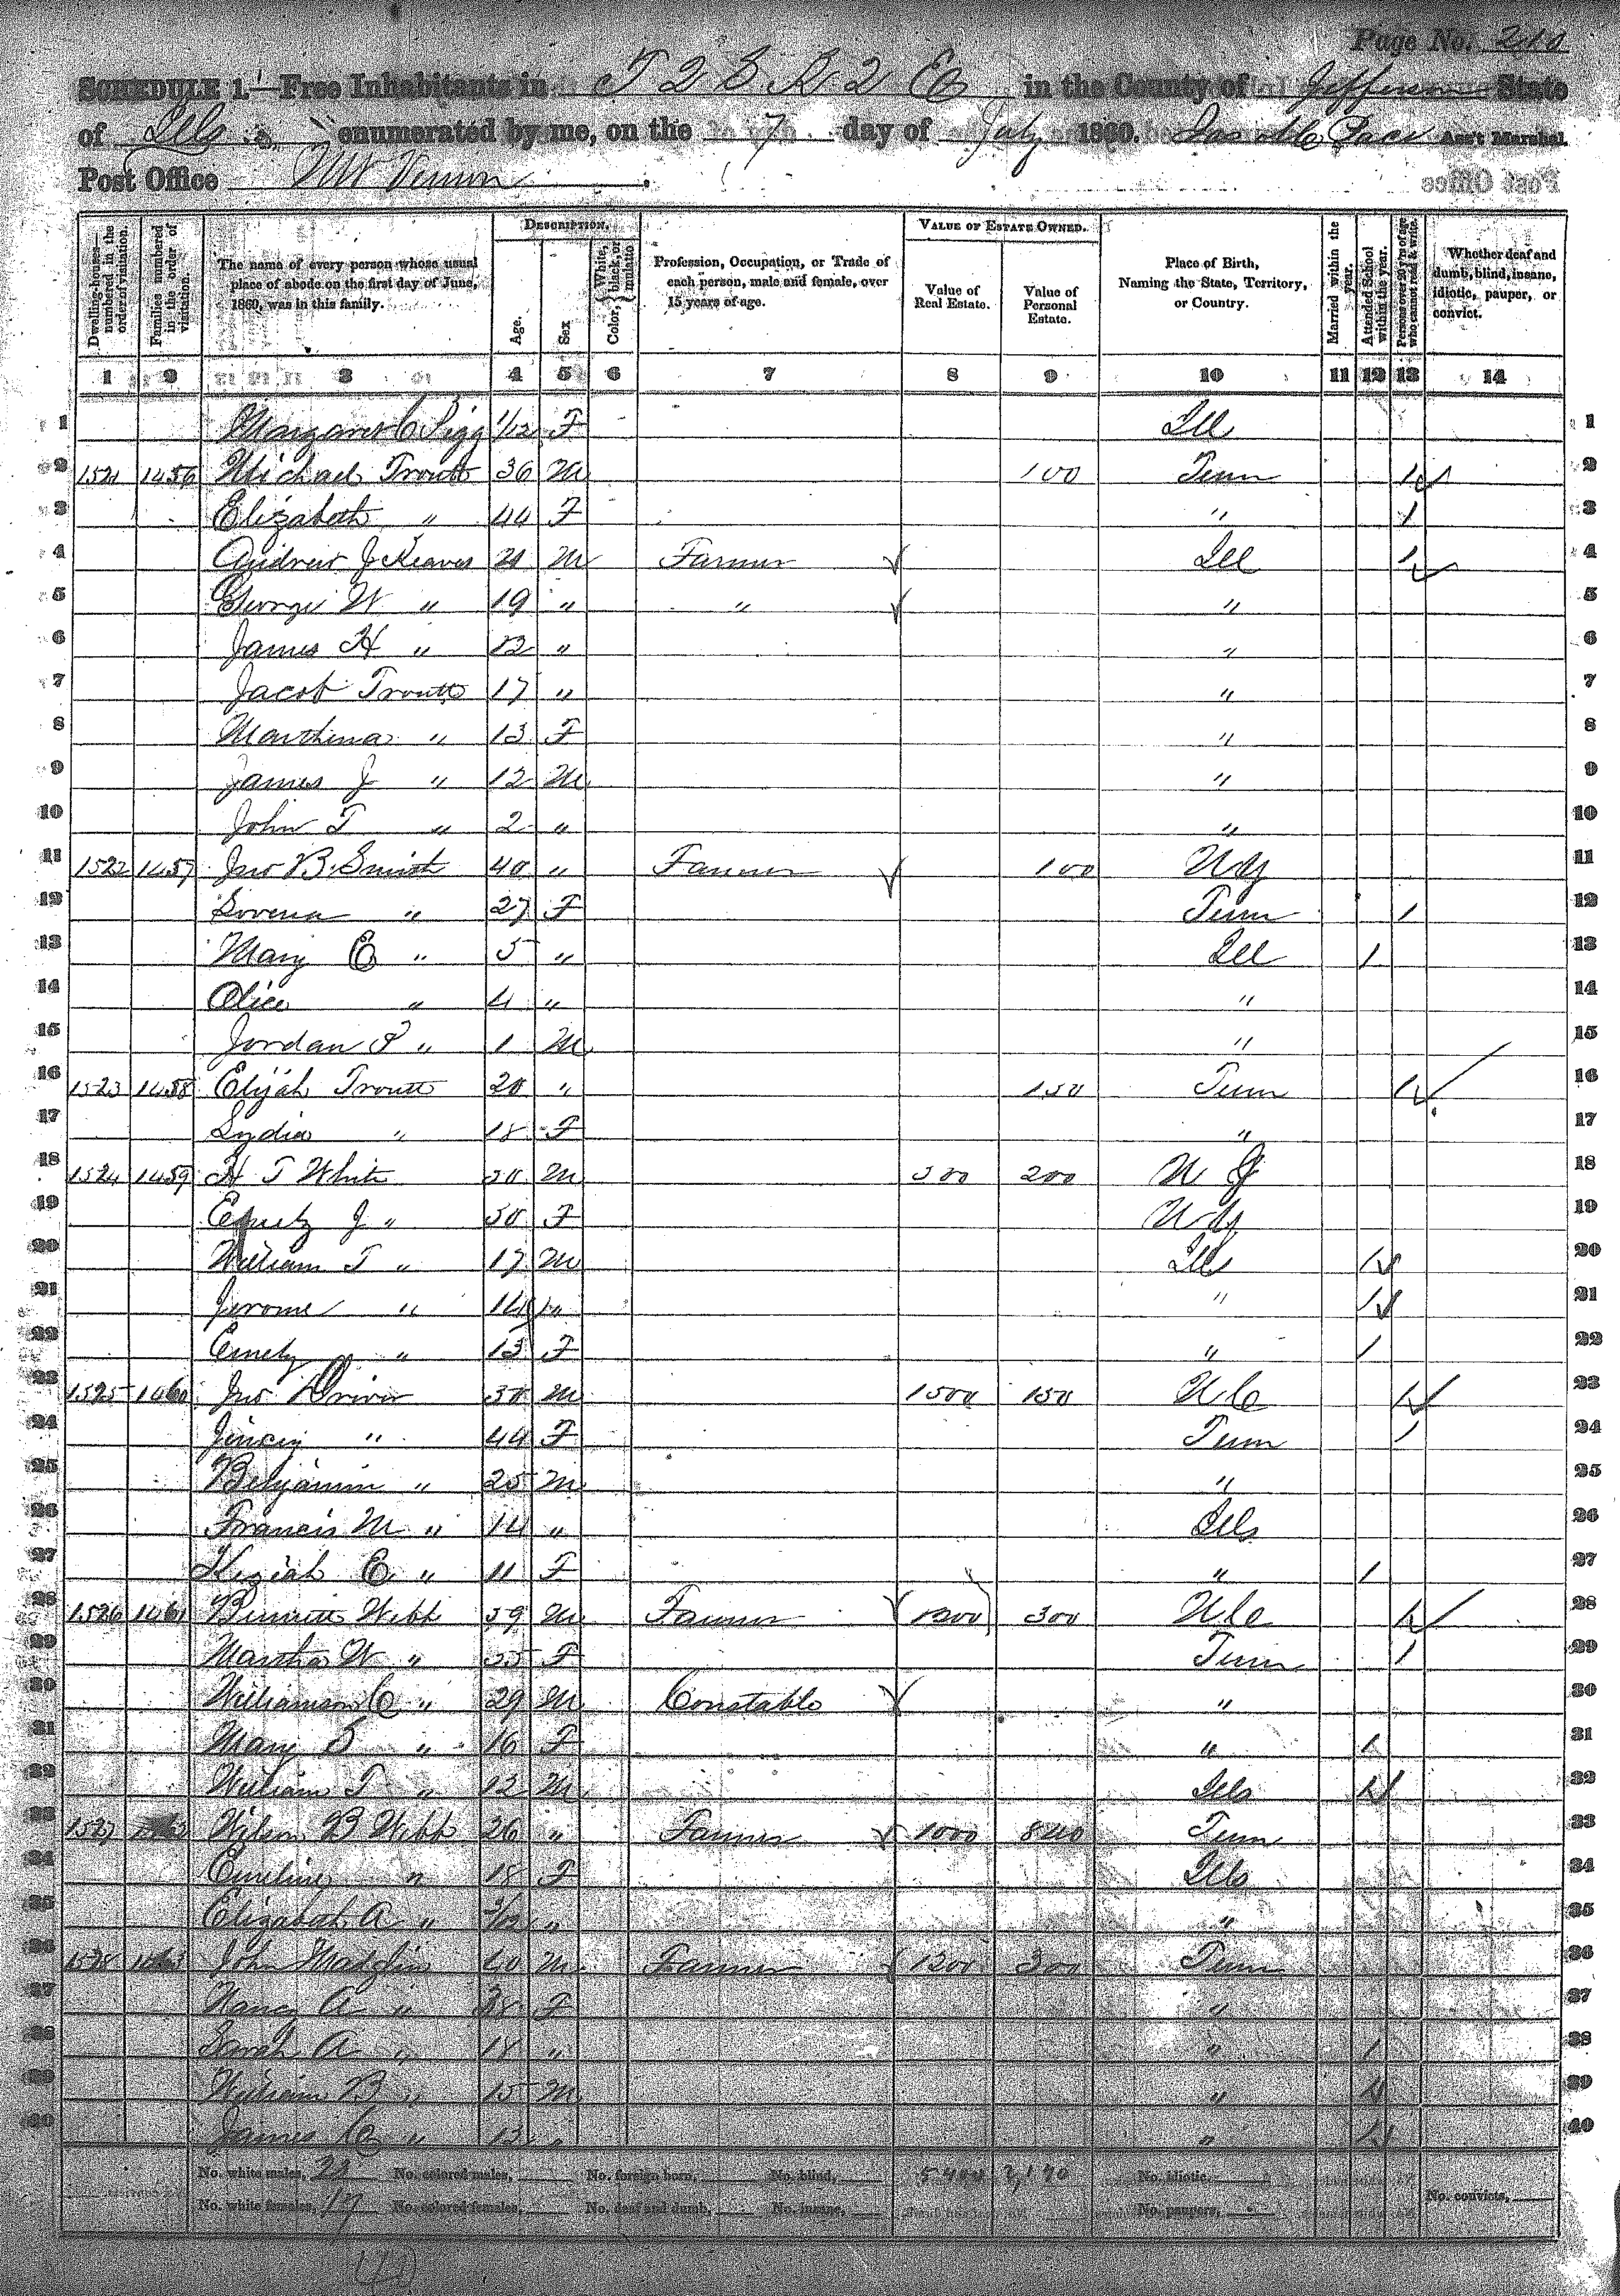 Page No. 210
SCHEDULE 1.—Free Inhabitants in T 2 S R 2 E in the County of Jefferson State
of Ills enumerated by me, on the 7 day of July 1860. Pace Ass't Marshal.
Post Office Mt Vernon
Dwelling-houses—numbered in the order of visitation.
Families numbered in the order of visitation.
The name of every person whose usual place of abode on the first day of June, 1860, was in this family.
DESCRIPTION.
Age.
Sex
Color, { White, black, or mulatto.
Profession, Occupation, or Trade of each person, male and female, over 15 years of age.
VALUE OF ESTATE OWNED.
Value of Real Estate.
Value of Personal Estate.
Place of Birth, Naming the State, Territory, or Country.
Married within the year.
Attended School within the year.
Persons over 20 y'rs of age who cannot read & write.
Whether deaf and dumb, blind, insane, idiotic, pauper, or convict.
1 2 3 4 5 6 7 8 9 10 11 12 13 14
1 Margaret C 1/12 F Ill 1
2 1521 1456 Michael Troutt 36 M 100 Tenn 1 2
3 Elizabeth " 44 F " 1 3
4 Andrew J Keaves 21 M Farmer Ill 1 4
5 George W " 19 " " " 5
6 James H " 12 " " 6
7 Jacob Troutt 17 " " 7
8 " 13 F " 8
9 James J " 12 M " 9
10 John T " 2 " " 10
11 1522 1457 Jno B Smith 40 " Farmer 100 N Y 11
12 Lovena " 27 F Tenn 1 12
13 Mary E " 5 " Ill 1 13
14 Olice " 4 " " 14
15 Jordan P " 1 M " 15
16 1523 1458 Elijah Troutt 20 " 150 Tenn 1 16
17 Lydia " 18 F " 17
18 1524 1459 H T White 50 M 500 200 N J 18
19 Emely J " 30 F N Y 19
20 William T " 17 M Ill 1 20
21 Jerome " 14 " " 1 21
22 Emely " 13 F " 1 22
23 1525 1460 Jno Driver 50 M 1500 150 N C 1 23
24 Jincy " 44 F Tenn 1 24
25 Benjamin " 25 M " 25
26 Francis M " 14 " Ills 26
27 Keziah E " 11 F " 1 27
28 1526 1461 Bennett Webb 59 M Farmer 1200 300 N C 1 28
29 Martha W " 55 F Tenn 1 29
30 Williamson C " 29 M Constable " 30
31 Mary S " 16 F " 1 31
32 William T " 12 M Ills 1 32
33 1527 Wilson B Webb 26 " Farmer 1000 840 Tenn 33
34 Emeline " 18 F Ills 34
35 Elizabeth A " 3/12 " " 35
36 1528 1463 John 40 M Farmer 1200 300 Tenn 36
37 Nancy A " 38 F " 37
38 Sarah A " 18 " " 1 38
39 William B " 15 M " 1 39
40 James C " 13 " " 1 40
No. white males, 23 No. colored males, No. foreign born, No. blind, No. idiotic,
No. white females, 17 No. colored females, No. deaf and dumb, No. insane, No. paupers, No. convicts,